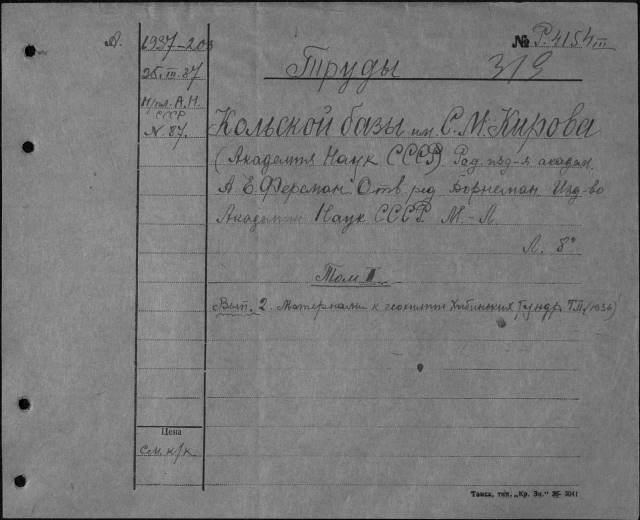 А.
1937-203
25.III.37
А.Н.
СССР
N 87.
№ Р.4154 III
Труды
319
Кольской базы им. С.М.Кирова
(Академия Наук СССР). Ред. изд-я академ.
А.Е.Ферсман Отв. ред. Борнеман. Изд-во
Академии Наук СССР. М.-Л.
Л. 8°
Том II
Вып. 2. Материалы к геохимии Хибинских Тундр
Цена
см. к/к.
Томск, тип. „Кр. Зн.“